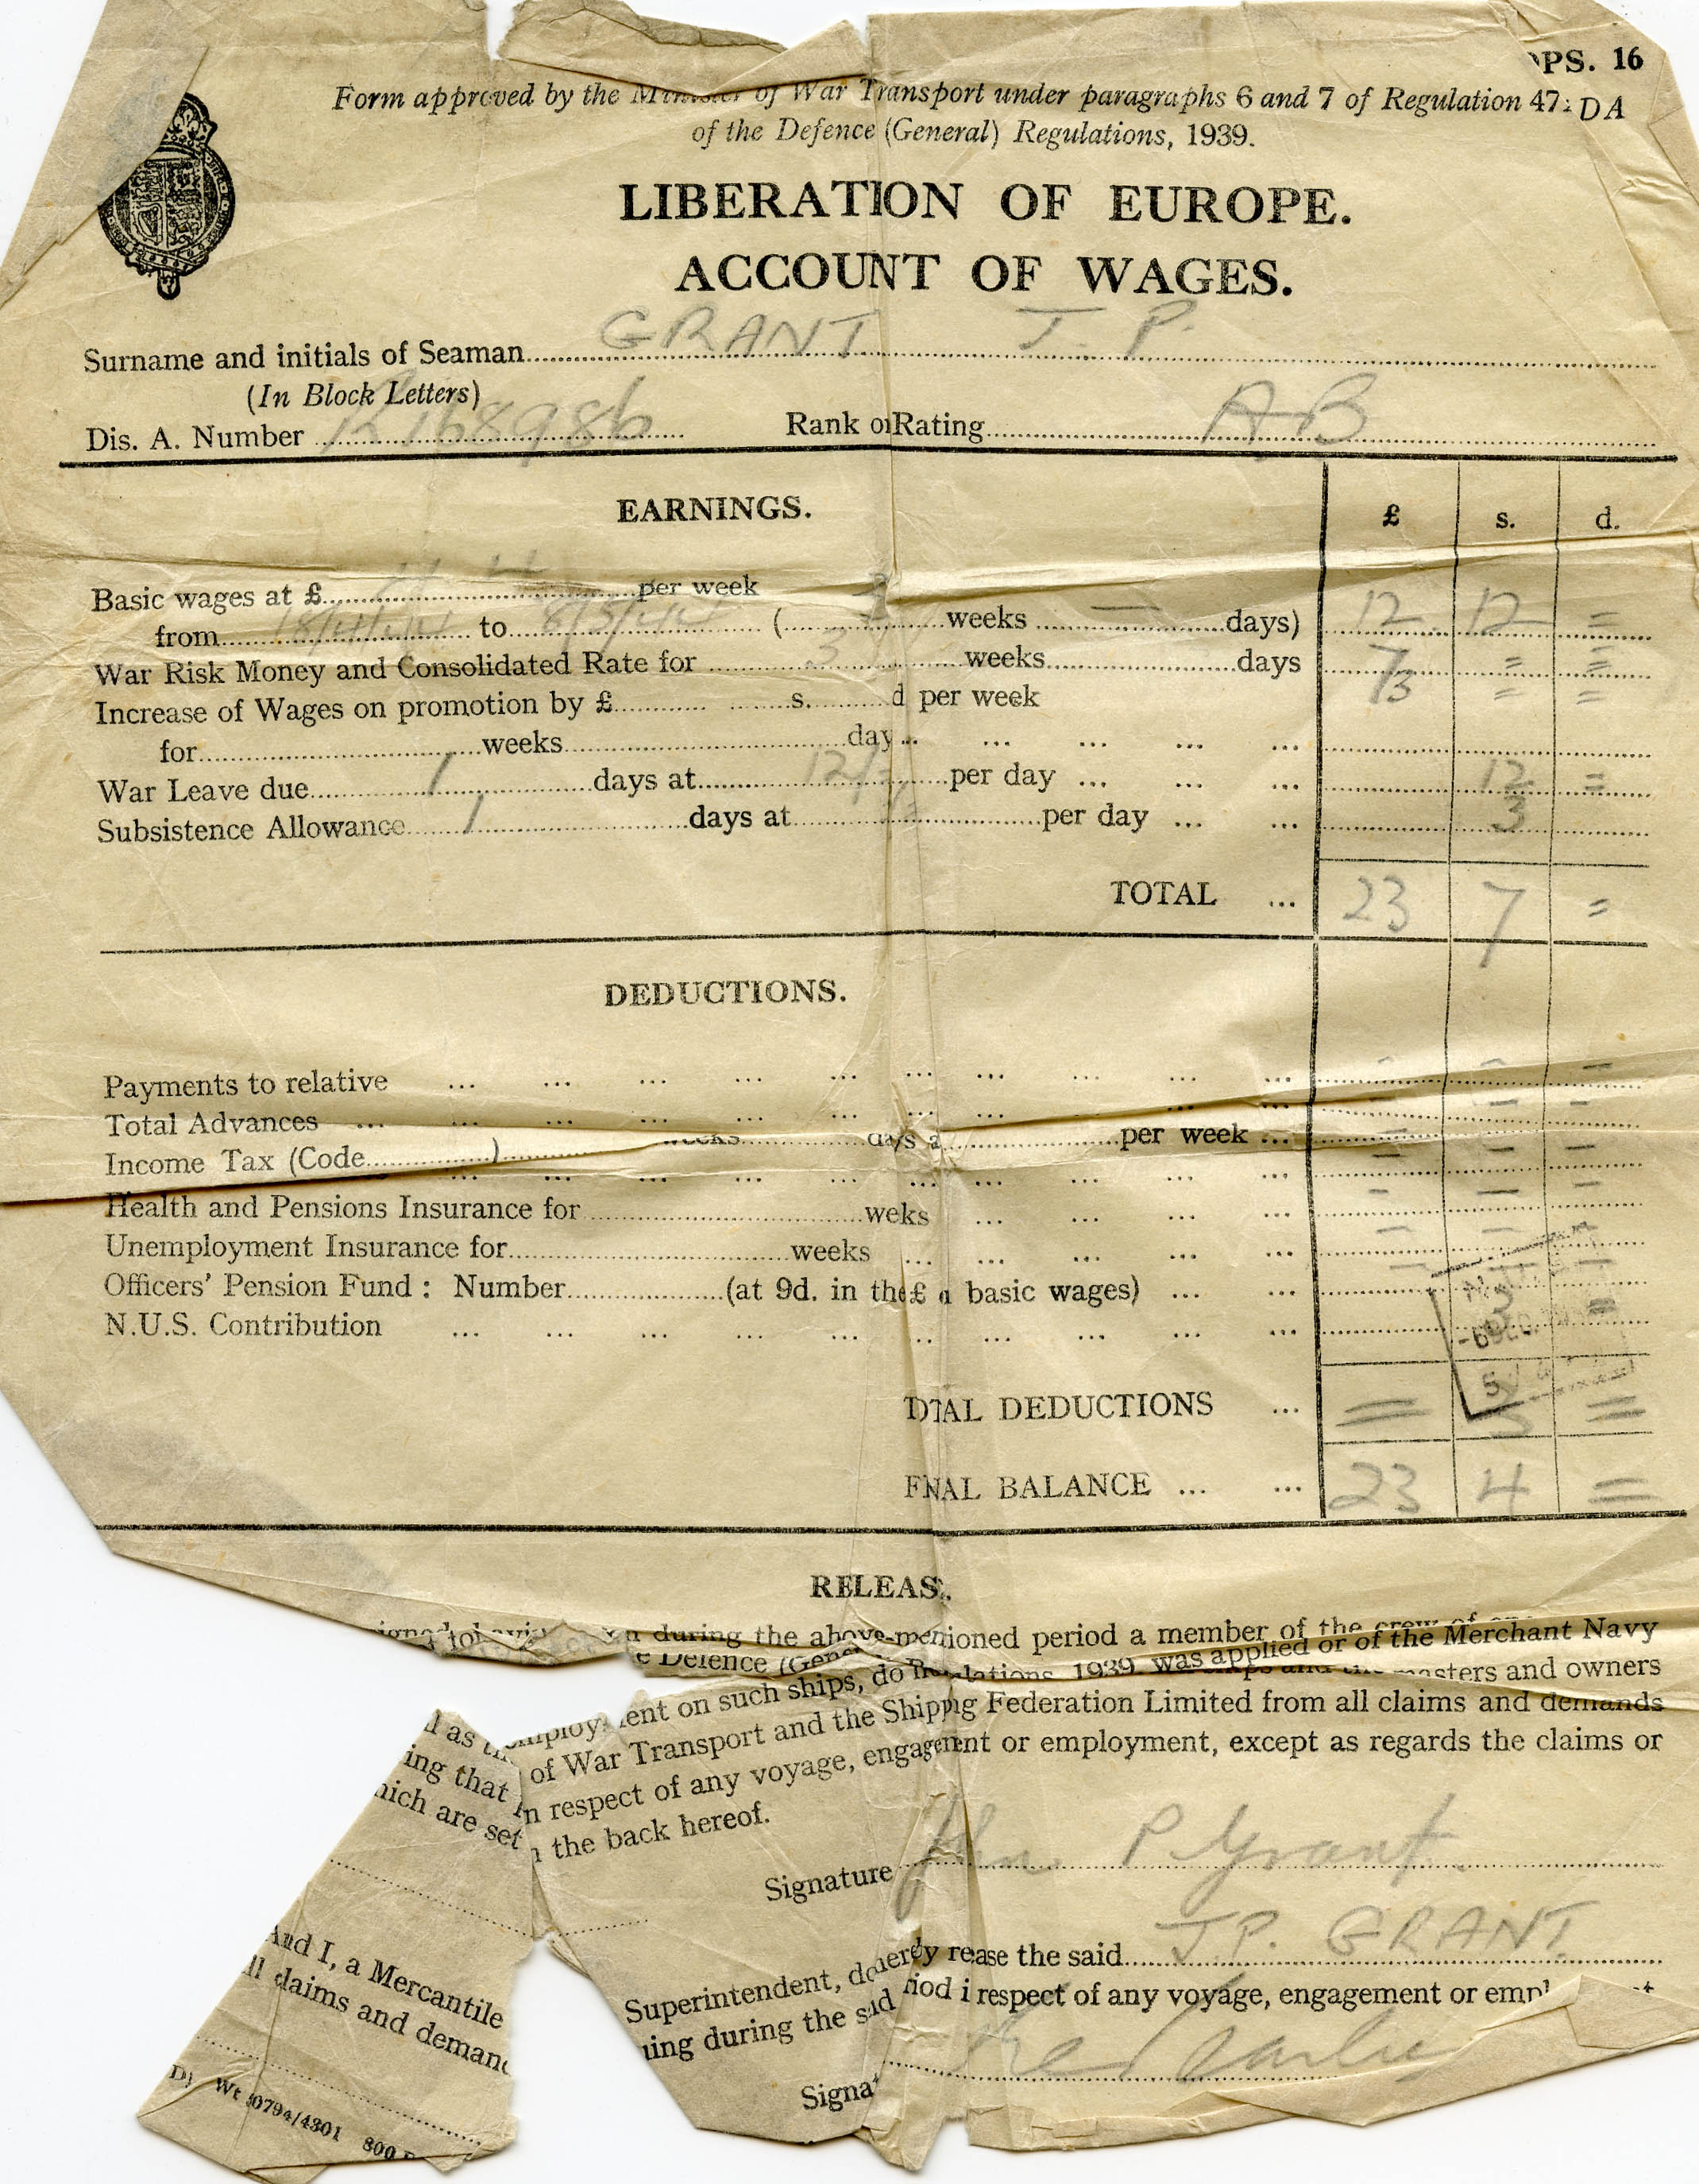 OPS. 16
Form approved by the Minister of War Transport under paragraphs 6 and 7 of Regulation 47: DA
of the Defence (General) Regulations, 1939.
LIBERATION OF EUROPE.
ACCOUNT OF WAGES.
Surname and initials of Seaman GRANT J. P.
(In Block Letters)
Dis. A. Number R168986 Rank or Rating AB
EARNINGS. £ s. d.
Basic wages at £ 4 4 per week
from 18/4/44 to 8/5/44 ( 3 weeks — days) 12 12 =
War Risk Money and Consolidated Rate for 3 weeks days 7 = =
Increase of Wages on promotion by £ s. d per week 3 = =
for weeks day ... ... ... ... ...
War Leave due 1 days at 12/ per day ... ... ... 12 =
Subsistence Allowance 1 days at 3 per day ... ... 3
TOTAL ... 23 7 =
DEDUCTIONS.
Payments to relative ... ... ... ... ... ... ... ... ... ... - - -
Total Advances ... ... ... ... ... ... ... ... ... - -
Income Tax (Code ) weeks days a per week ... - - -
Health and Pensions Insurance for weks ... ... ... ... - - -
Unemployment Insurance for weeks ... ... ... ... ... - -
Officers' Pension Fund : Number (at 9d. in the £ a basic wages) ... ...
N.U.S. Contribution ... ... ... ... ... ... ... ... ... 3 =
TOTAL DEDUCTIONS ... = 3 =
FNAL BALANCE ... ... 23 4 =
RELEAS
during the above-menioned period a member of the crew of
e Defence (Gene lations, 1939, was applied or of the Merchant Navy
l as employment on such ships, do masters and owners
ing that of War Transport and the Shippig Federation Limited from all claims and demands
hich are set in respect of any voyage, engagement or employment, except as regards the claims or
the back hereof.
Signature John P Grant
And I, a Mercantile Superintendent, do hereby rease the said J. P. GRANT
ll claims and demand uing during the said riod i respect of any voyage, engagement or empl
Signat
Wt 0794/4301 800